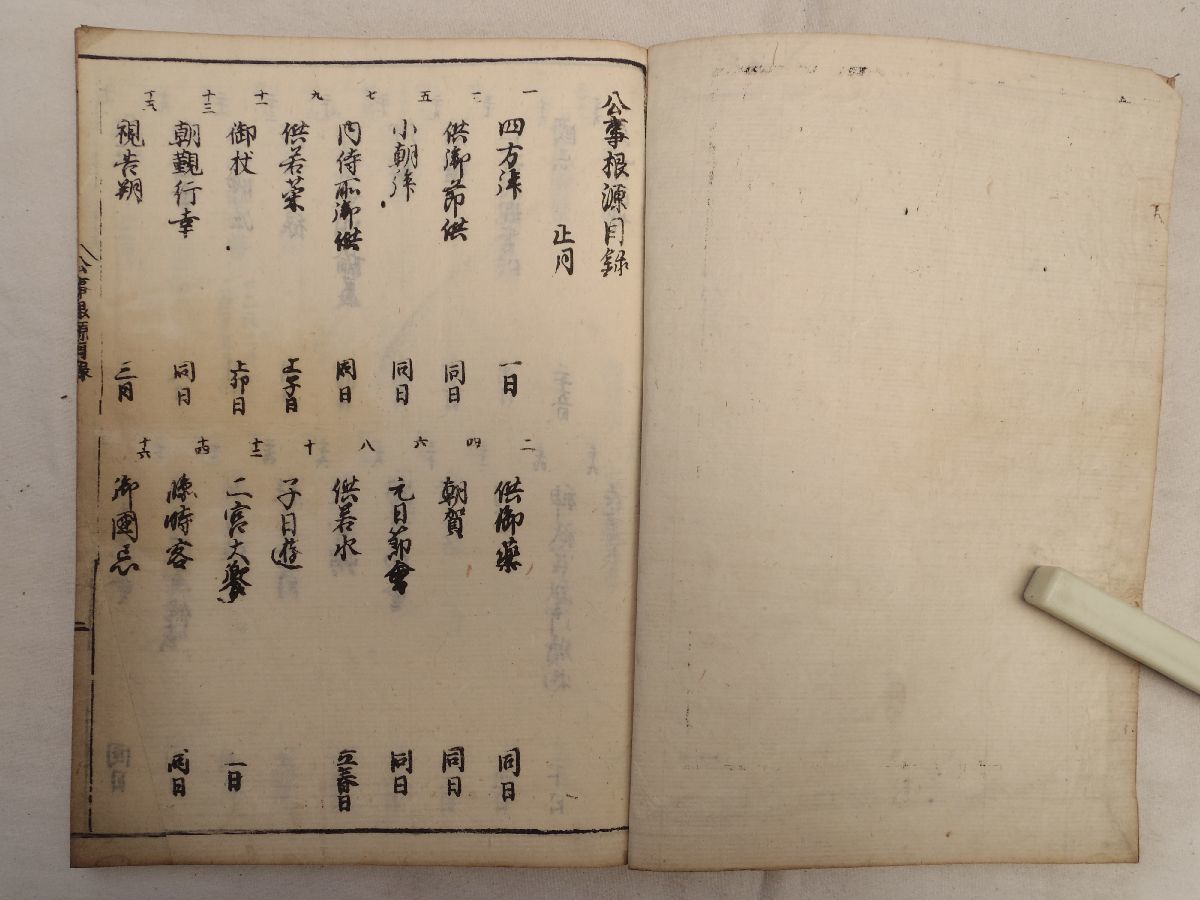 公事根源目録
正月
一 四方拝 一日
二 供御薬 同日
三 供御節供 同日
四 朝賀 同日
五 小朝拝 同日
六 元日節會 同日
七 内侍所御供 同日
八 供若水 立春日
九 供若菜 上子日
十 子日遊
十一 御杖 上卯日
十二 二宮大饗 二日
十三 朝覲行幸 同日
十四 臨時客 同日
十五 視告朔 三日
十六 御國忌
公事根源目録